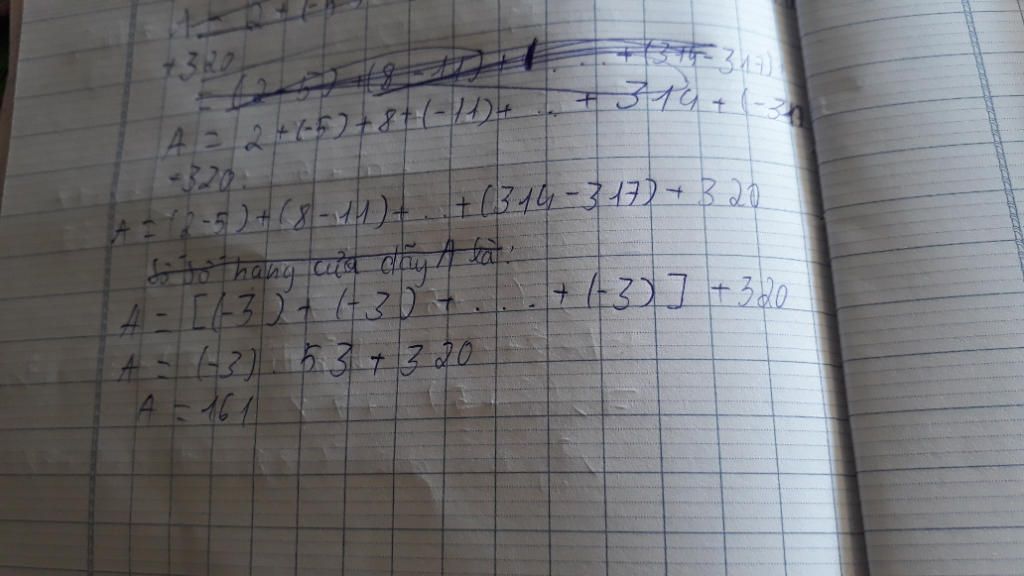 A = 2 + (-5)
+320
= (2-5) + (8-11) + ... + (314-317)
A = 2 + (-5) + 8 + (-11) + ... + 314 + (-31
+320.
A = (2-5) + (8-11) + ... + (314-317) + 320
Số số hạng của dãy A là:
A = [(-3) + (-3) + .... + (-3)] + 320
A = (-3) . 53 + 320
A = 161